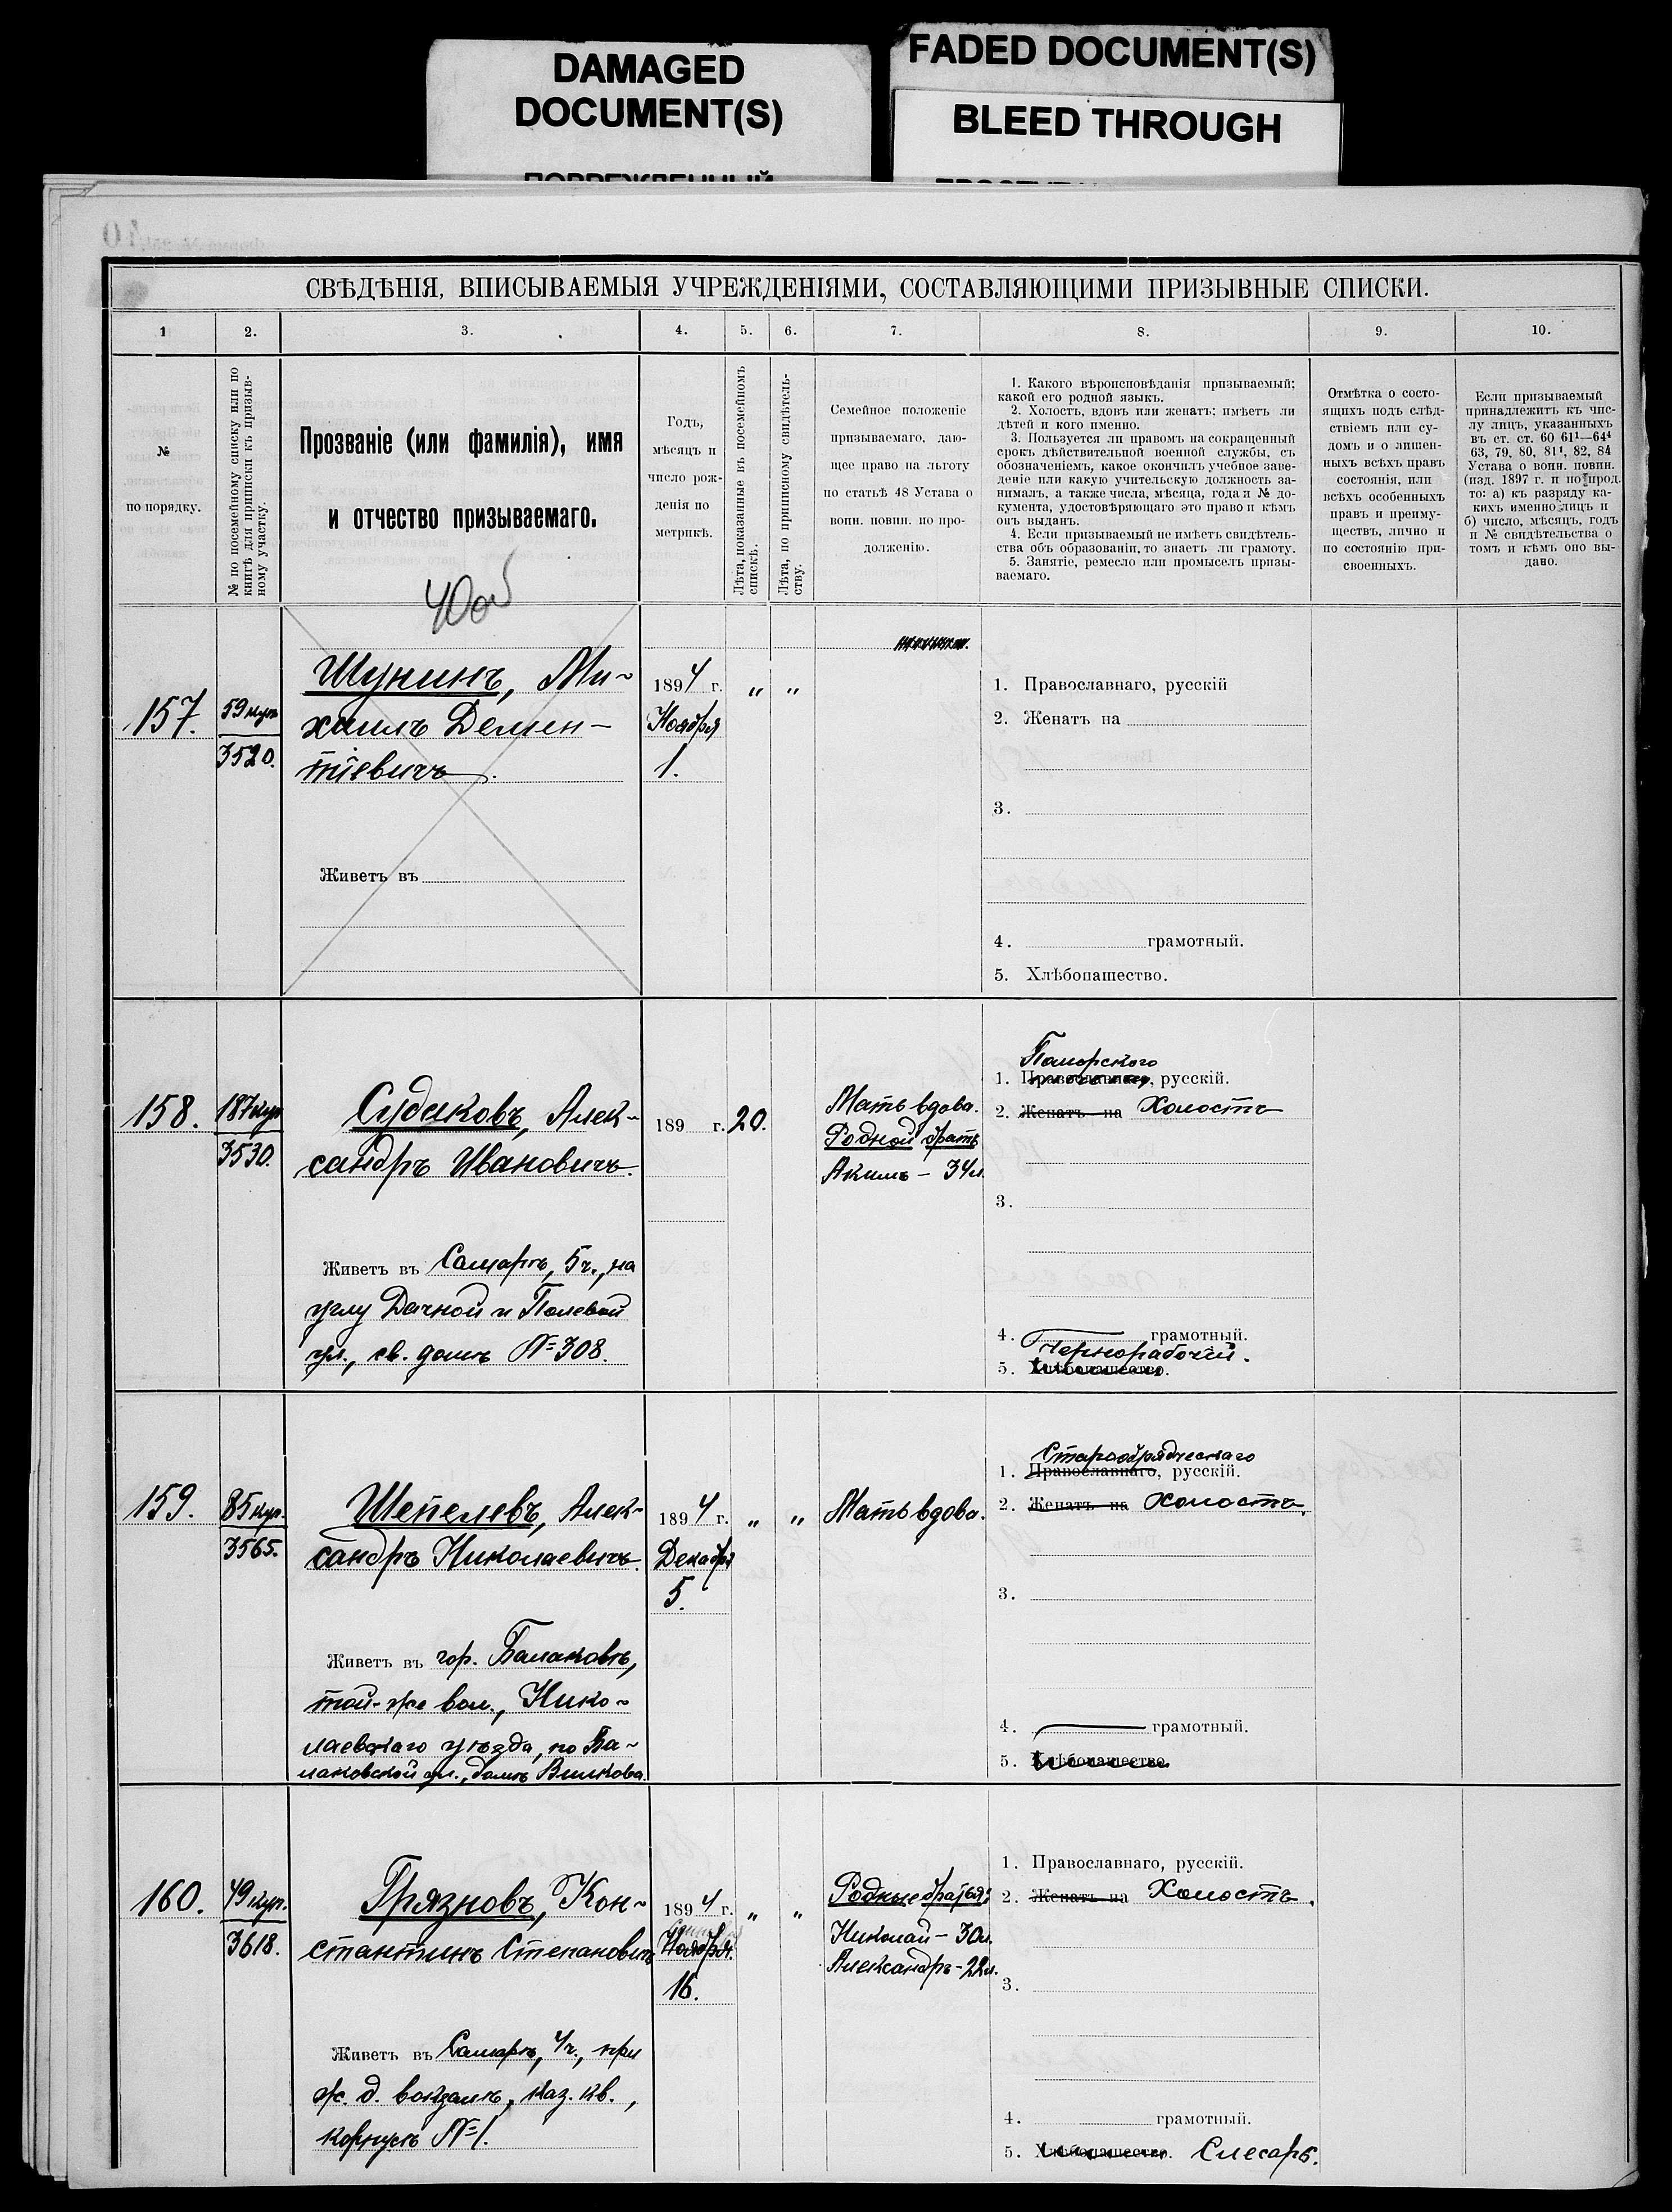 DAMAGED
DOCUMENT(S)
FADED DOCUMENT(S)
BLEED THROUGH
СВѢДѢНІЯ, ВПИСЫВАЕМЫЯ УЧРЕЖДЕНІЯМИ, СОСТАВЛЯЮЩИМИ ПРИЗЫВНЫЕ СПИСКИ.
1 2. 3. 4. 5. 6. 7. 8. 9. 10.
№
по порядку.
№ по посемейному списку или по
книгѣ для приписки къ призыв-
ному участку.
Прозваніе (или фамилія), имя
и отчество призываемаго.
Годъ,
мѣсяцъ и
число рож-
денія по
метрикѣ.
Лѣта, показанные въ посемейномъ
спискѣ.
Лѣта, по приписному свидѣтель-
ству.
Семейное положеніе
призываемаго, даю-
щее право на льготу
по статьѣ 48 Устава о
воин. повин. по про-
долженію.
1. Какого вѣроисповѣданія призываемый;
какой его родной языкъ.
2. Холостъ, вдовъ или женатъ; имѣетъ ли
дѣтей и кого именно.
3. Пользуется ли правомъ на сокращенный
срокъ дѣйствительной военной службы, съ
обозначеніемъ, какое окончилъ учебное заве-
деніе или какую учительскую должность за-
нималъ, а также числа, мѣсяца, года и № до-
кумента, удостовѣряющаго это право и кѣмъ
онъ выданъ.
4. Если призываемый не имѣетъ свидѣтель-
ства объ образованіи, то знаетъ ли грамоту.
5. Занятіе, ремесло или промыселъ призы-
ваемаго.
Отмѣтка о состо-
ящихъ подъ слѣд-
ствіемъ или су-
домъ и о лишен-
ныхъ всѣхъ правъ
состоянія, или
всѣхъ особенныхъ
правъ и преиму-
ществъ, лично и
по состоянію при-
своенныхъ.
Если призываемый
принадлежитъ къ чис-
лу лицъ, указанныхъ
въ ст. ст. 60 61¹—64⁴
63, 79, 80, 81¹, 82, 84
Устава о воин. повин.
(изд. 1897 г. и по прод.
то: а) къ разряду ка-
кихъ именно лицъ и
б) число, мѣсяцъ, годъ
и № свидѣтельства о
томъ и кѣмъ оно вы-
дано.
157. 59 куп.
3520.
Шунинъ, Ми-
хаилъ Демен-
тіевичъ.
Живетъ въ
1894 г.
Ноября
1.
" "
1. Православнаго, русскій
2. Женатъ на
3.
4. грамотный.
5. Хлѣбопашество.
158. 187 куп
3530.
Судаковъ, Алек-
сандръ Ивановичъ.
Живетъ въ Самарѣ, 5 ч., на
углу Дачной и Полевой
ул., св. домъ № 308.
189 г. 20.
Мать вдова.
Родной братъ
Акимъ – 34 л.
Поморского
1. Православнаго, русскій.
2. Женатъ на Холостъ
3.
4. грамотный.
Чернорабочій.
5. Хлѣбопашество.
159. 85 куп.
3565.
Шепелевъ, Алек-
сандръ Николаевичъ.
Живетъ въ гор. Балаковѣ,
той-же вол., Нико-
лаевскаго уѣзда, по Ба-
лаковской ул., домъ Вилкова.
1894 г. " "
Декабря
5.
Мать вдова.
Старообрядческаго
1. Православнаго, русскій.
2. Женатъ на Холостъ.
3.
4. грамотный.
5. Хлѣбопашество.
160. 49 куп.
3618.
Грязновъ, Кон-
стантинъ Степановичъ
Живетъ въ Самарѣ, 4 ч., при
ж. д. вокзалѣ, каз. кв.,
корпусъ № 1.
1894 г. " "
Ноября.
16.
Родные братья:
Николай – 30 л.
Александръ – 22 л.
1. Православнаго, русскій.
2. Женатъ на Холостъ.
3.
4. грамотный.
5. Хлѣбопашество. Слесарь.